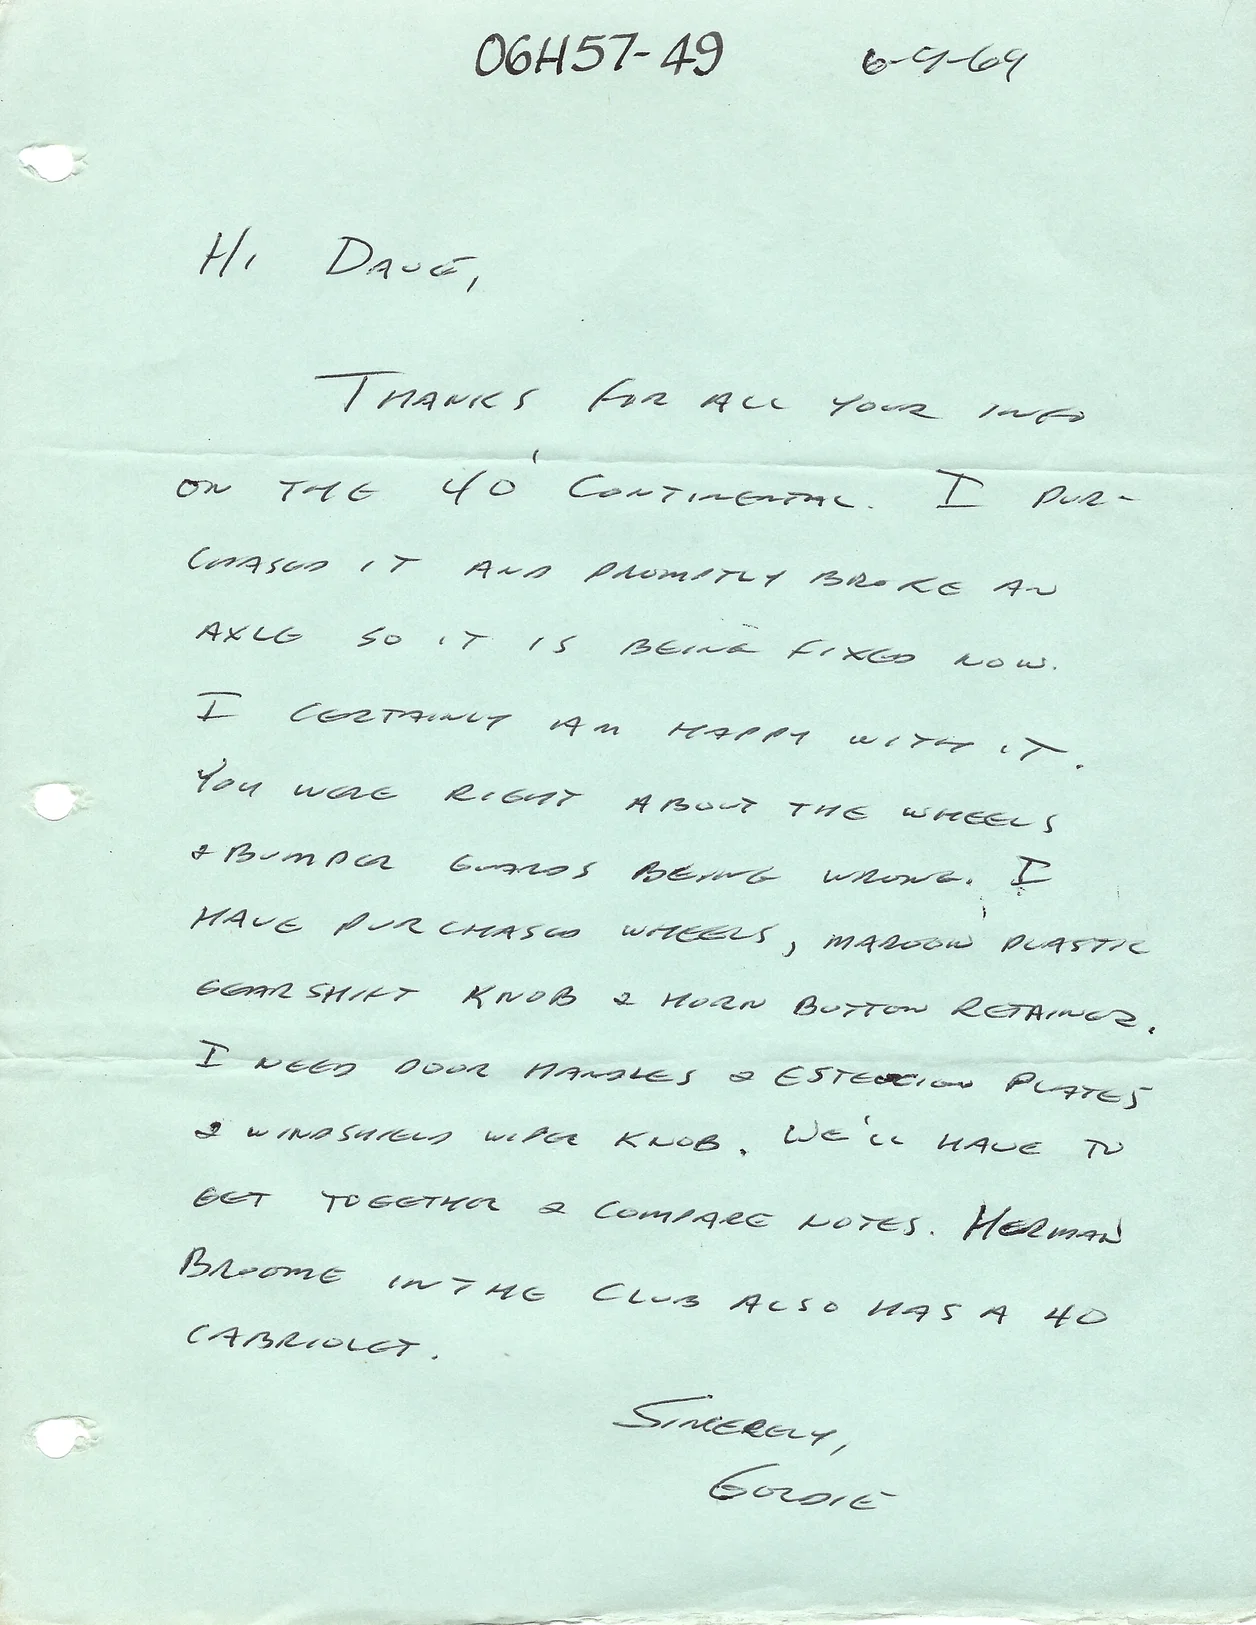 06H57-49 6-9-69
HI DAVE,
THANKS FOR ALL YOUR INFO
ON THE 40' CONTINENTAL. I PUR-
CHASED IT AND PROMPTLY BROKE AN
AXLE SO IT IS BEING FIXED NOW.
I CERTAINLY AM HAPPY WITH IT.
YOU WERE RIGHT ABOUT THE WHEELS
& BUMPER GUARDS BEING WRONG. I
HAVE PURCHASED WHEELS, MAROON PLASTIC
GEARSHIFT KNOB & HORN BUTTON RETAINER.
I NEED DOOR HANDLES & PLATES
& WINDSHIELD WIPER KNOB. WE'LL HAVE TO
GET TOGETHER & COMPARE NOTES. HERMAN
BROOME IN THE CLUB ALSO HAS A 40
CABRIOLET.
SINCERELY,
GOLDIE